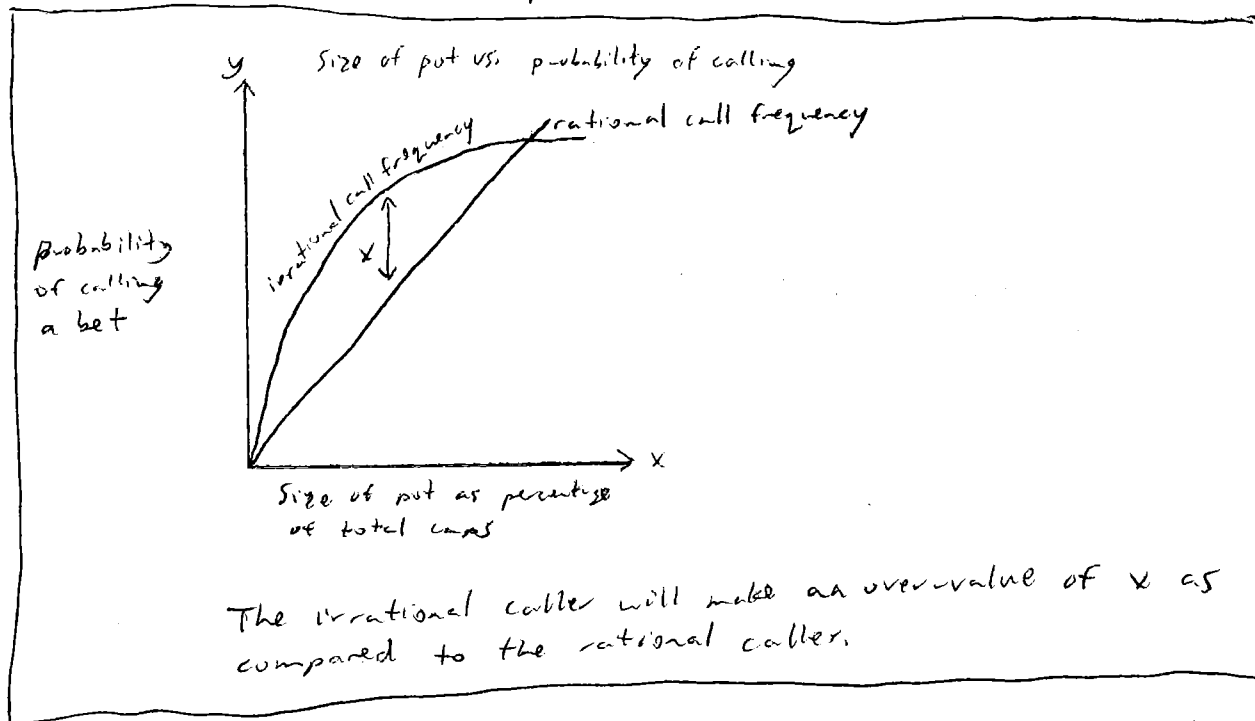 y
Size of pot vs. probability of calling
rational call frequency
irrational call frequency
x
probability
of calling
a bet
x
Size of pot as percentage
of total
The irrational caller will make an over-value of x as
compared to the rational caller.